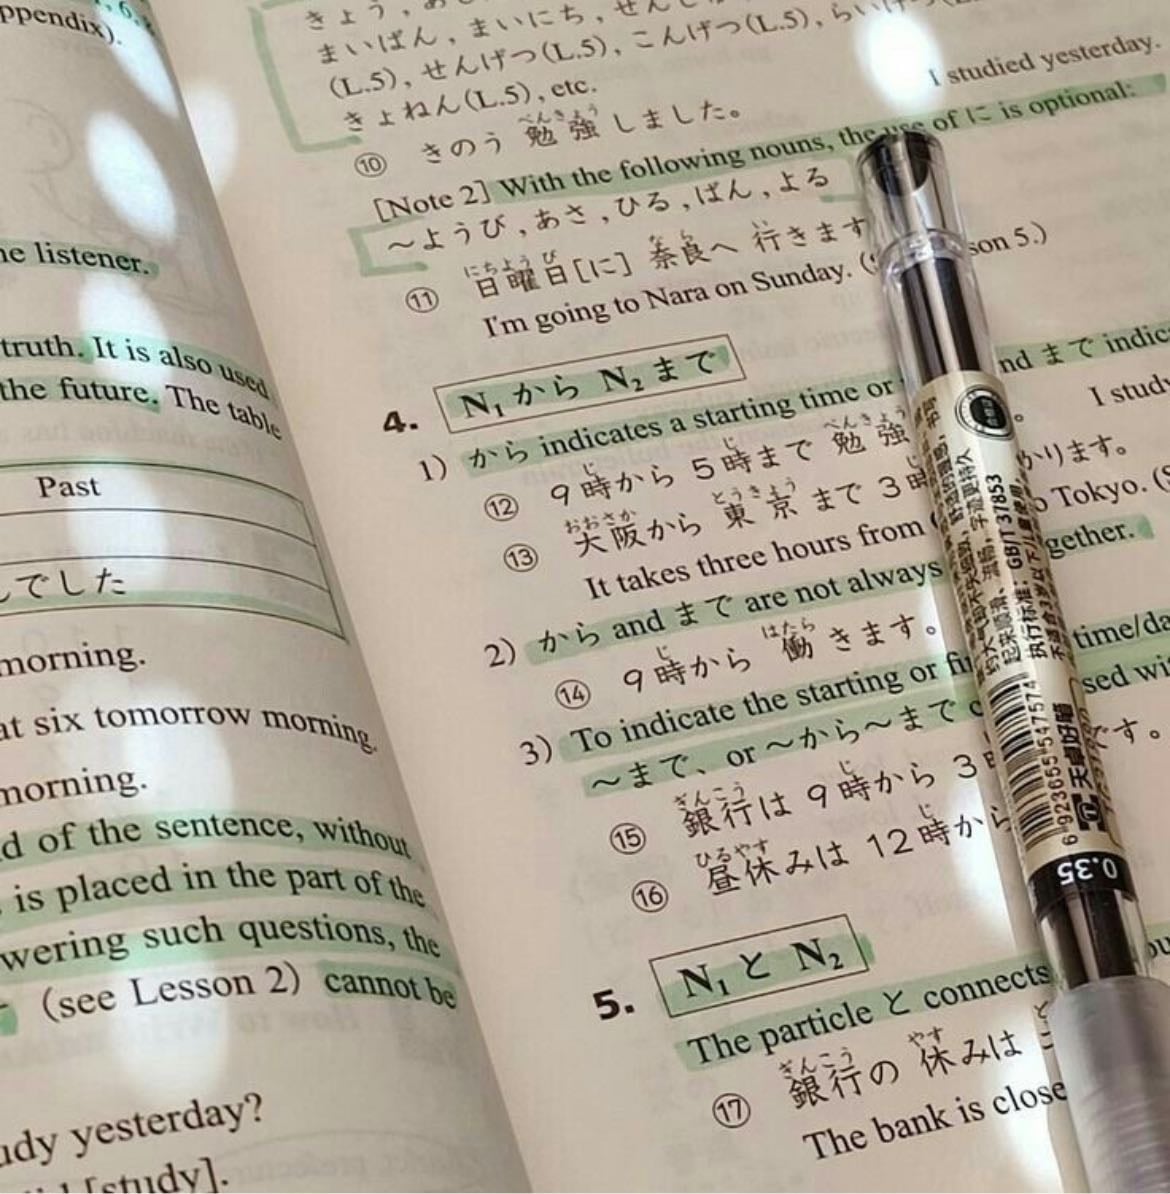 ppendix).
ne listener.
truth. It is also used
the future. The table
Past
でした
morning.
at six tomorrow morning.
morning.
d of the sentence, without
is placed in the part of the
wering such questions, the
(see Lesson 2) cannot be
udy yesterday?
[study].
まいばん, まいにち,
(L.5), せんげつ(L.5), こんげつ(L.5),
きょねん(L.5), etc.
⑩ きのう 勉強しました。 I studied yesterday.
[Note 2] With the following nouns, the use of に is optional:
～ようび, あさ, ひる, ばん, よる
⑪ 日曜日[に] 奈良へ 行きます
I'm going to Nara on Sunday. son 5.)
4. N₁から N₂まで
1) から indicates a starting time or nd まで indic
⑫ 9時から 5時まで 勉強 。 I stud
⑬ 大阪から 東京まで 3時 かります。
It takes three hours from Tokyo.
2) から and まで are not always gether.
⑭ 9時から 働きます。
3) To indicate the starting or time/da
～まで、or ～から～まで sed wi
⑮ 銀行は 9時から 3 です。
⑯ 昼休みは 12時から
5. N₁と N₂
The particle と connects
⑰ 銀行の 休みは
The bank is close
起来顺滑、流畅，字迹更持久
执行标准: GB/T 37853
6 923655 547574
天卓好笔
0.35